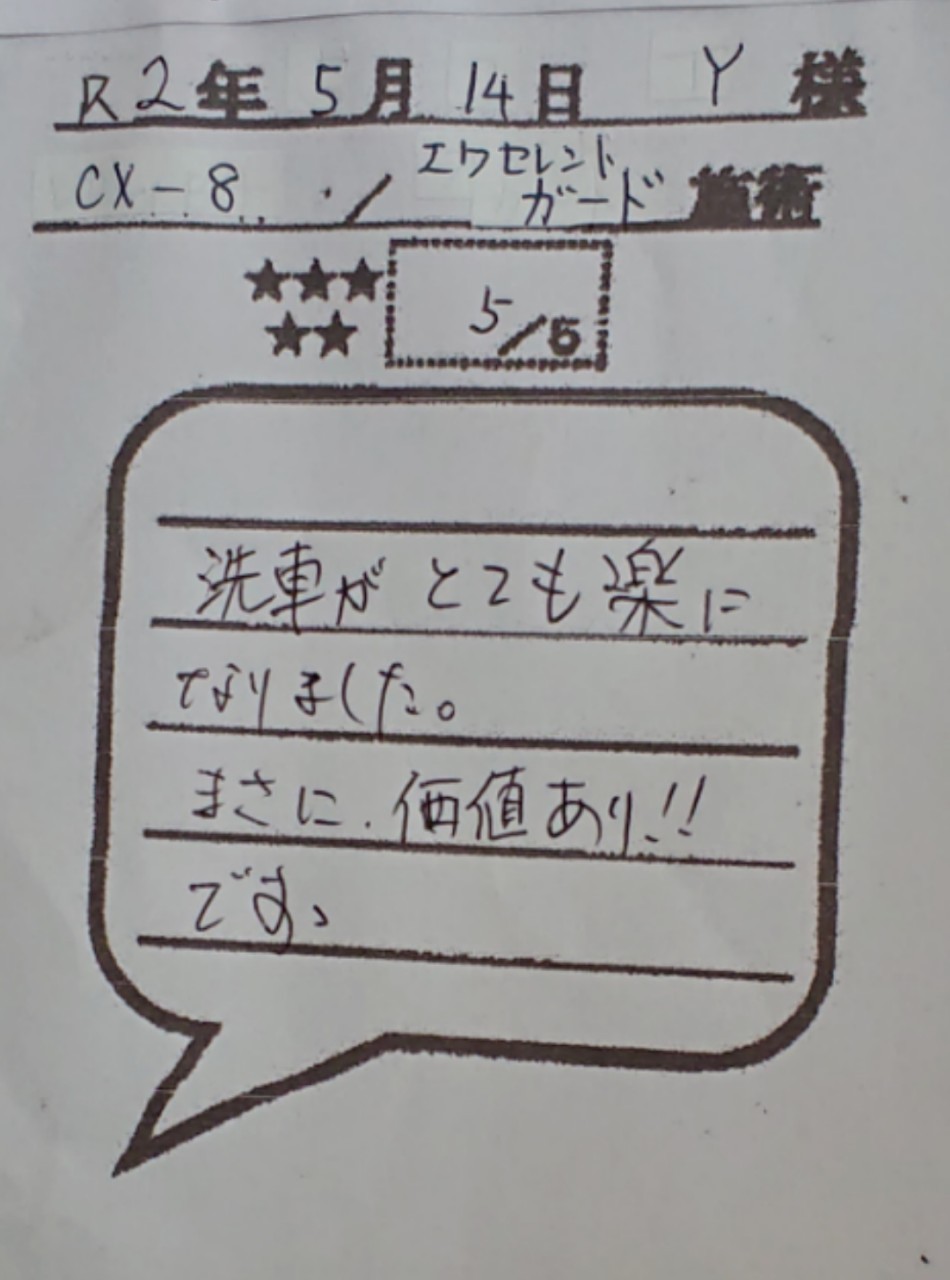 R2年 5月 14日 Y 様
CX-8 / エクセレント
ガード 施術
★★★
★★
5/5
洗車がとても楽に
なりました。
まさに、価値あり!!
です。